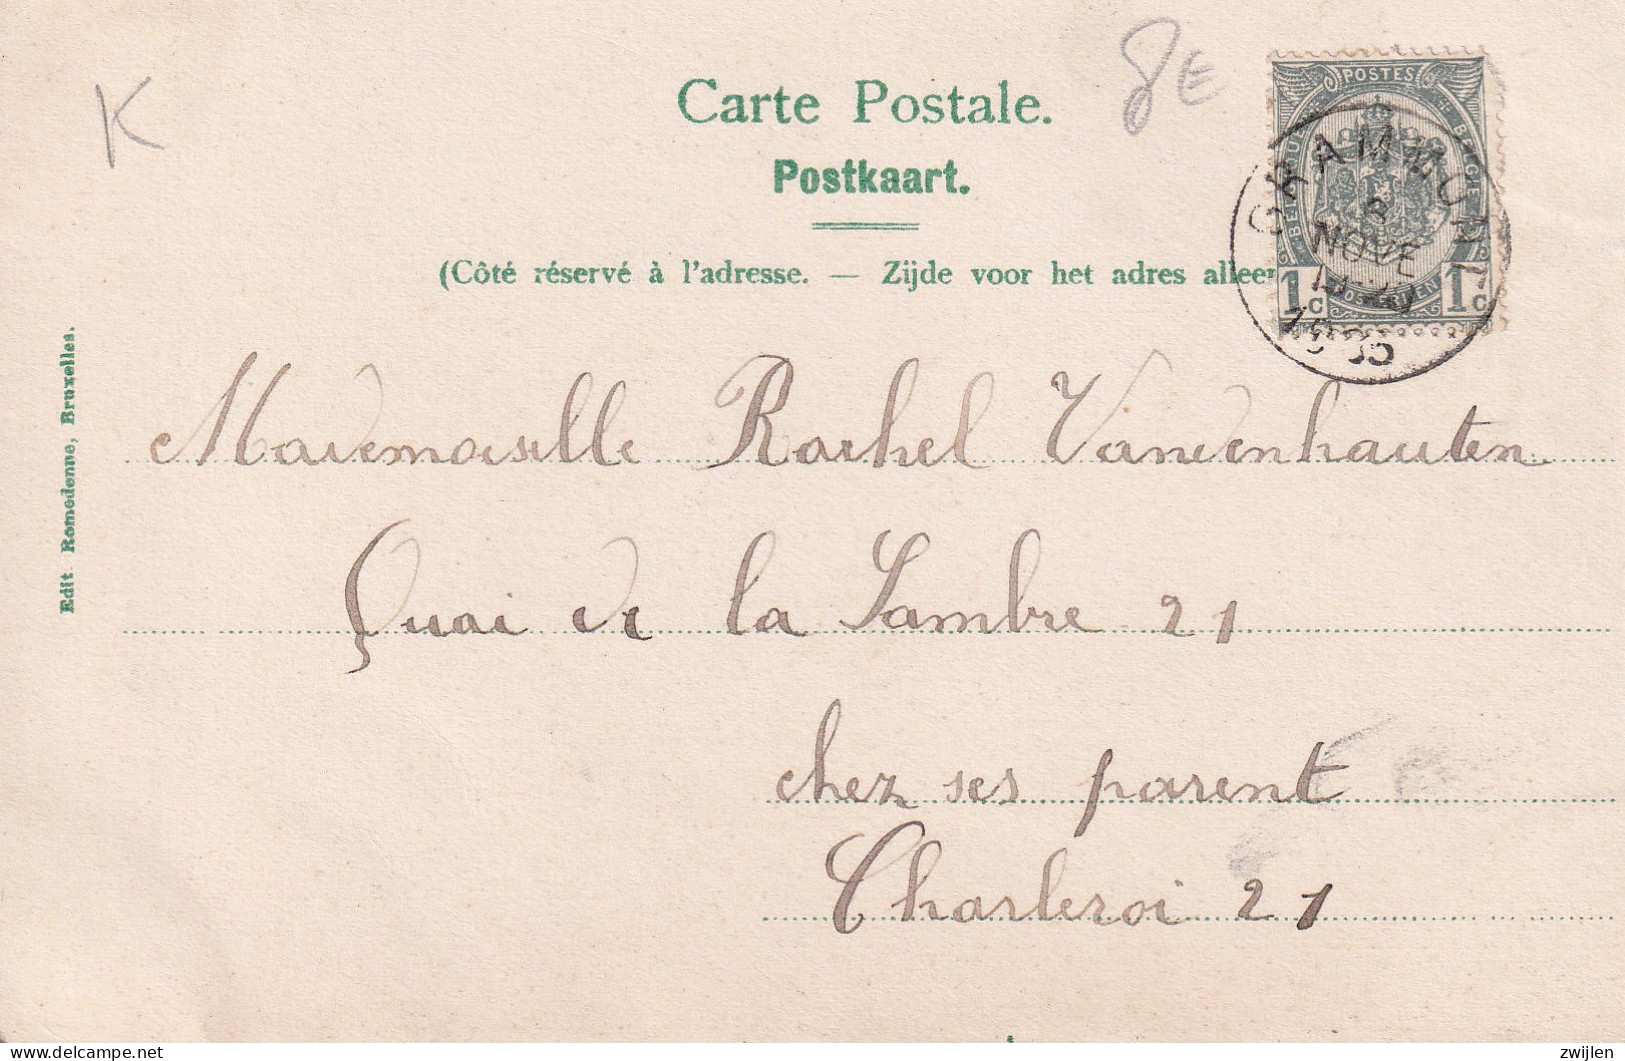 K
8E
Carte Postale.
Postkaart.
(Côté réservé à l'adresse. — Zijde voor het adres alleen
POSTES
BELGIQUE
1c 1c
GRAMMONT
8
NOVE
Edit Romedenne, Bruxelles.
Mademoiselle Rachel Vandenhauten
Quai de la Sambre 21
chez ses parent
Charleroi 21
zwijlen